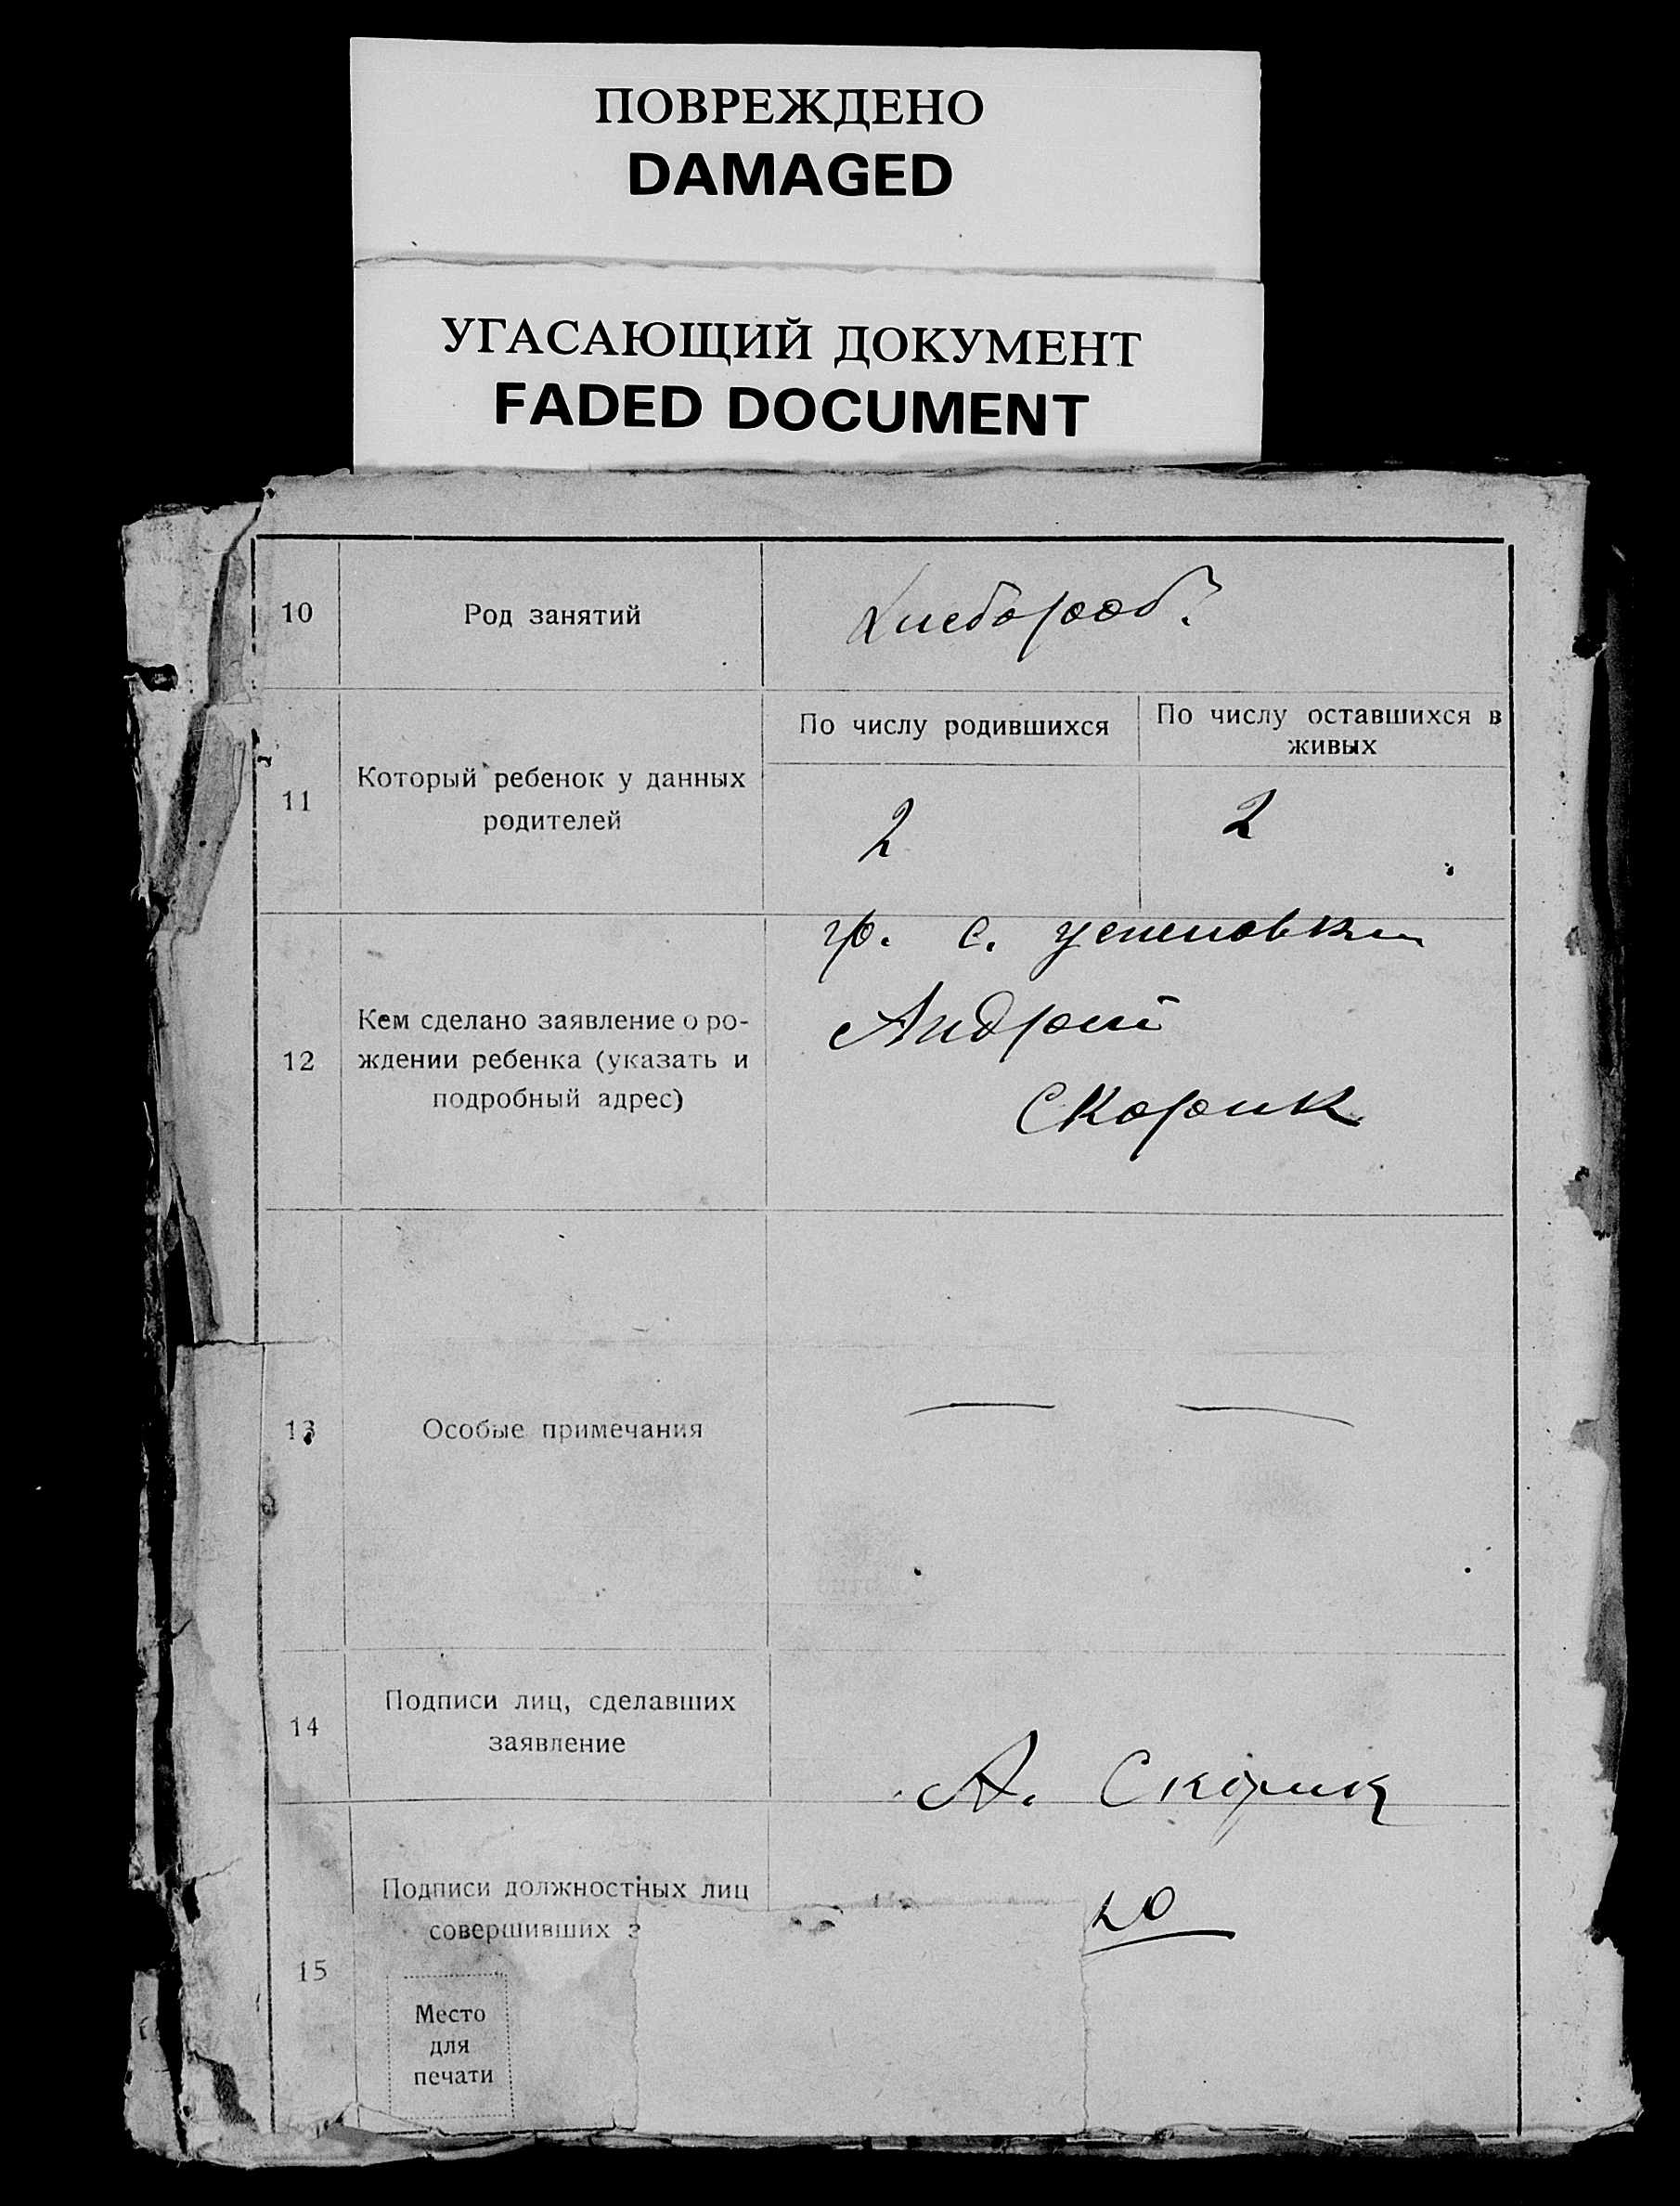 ПОВРЕЖДЕНО
DAMAGED
УГАСАЮЩИЙ ДОКУМЕНТ
FADED DOCUMENT
10
Род занятий
Хлебороб.
11
Который ребенок у данных
родителей
По числу родившихся
По числу оставшихся в
живых
2
2
12
Кем сделано заявление о ро-
ждении ребенка (указать и
подробный адрес)
гр. с.
Андрей
Скорик
13
Особые примечания
14
Подписи лиц, сделавших
заявление
А. Скорик
15
Подписи должностных лиц
совершивших з
Место
для
печати